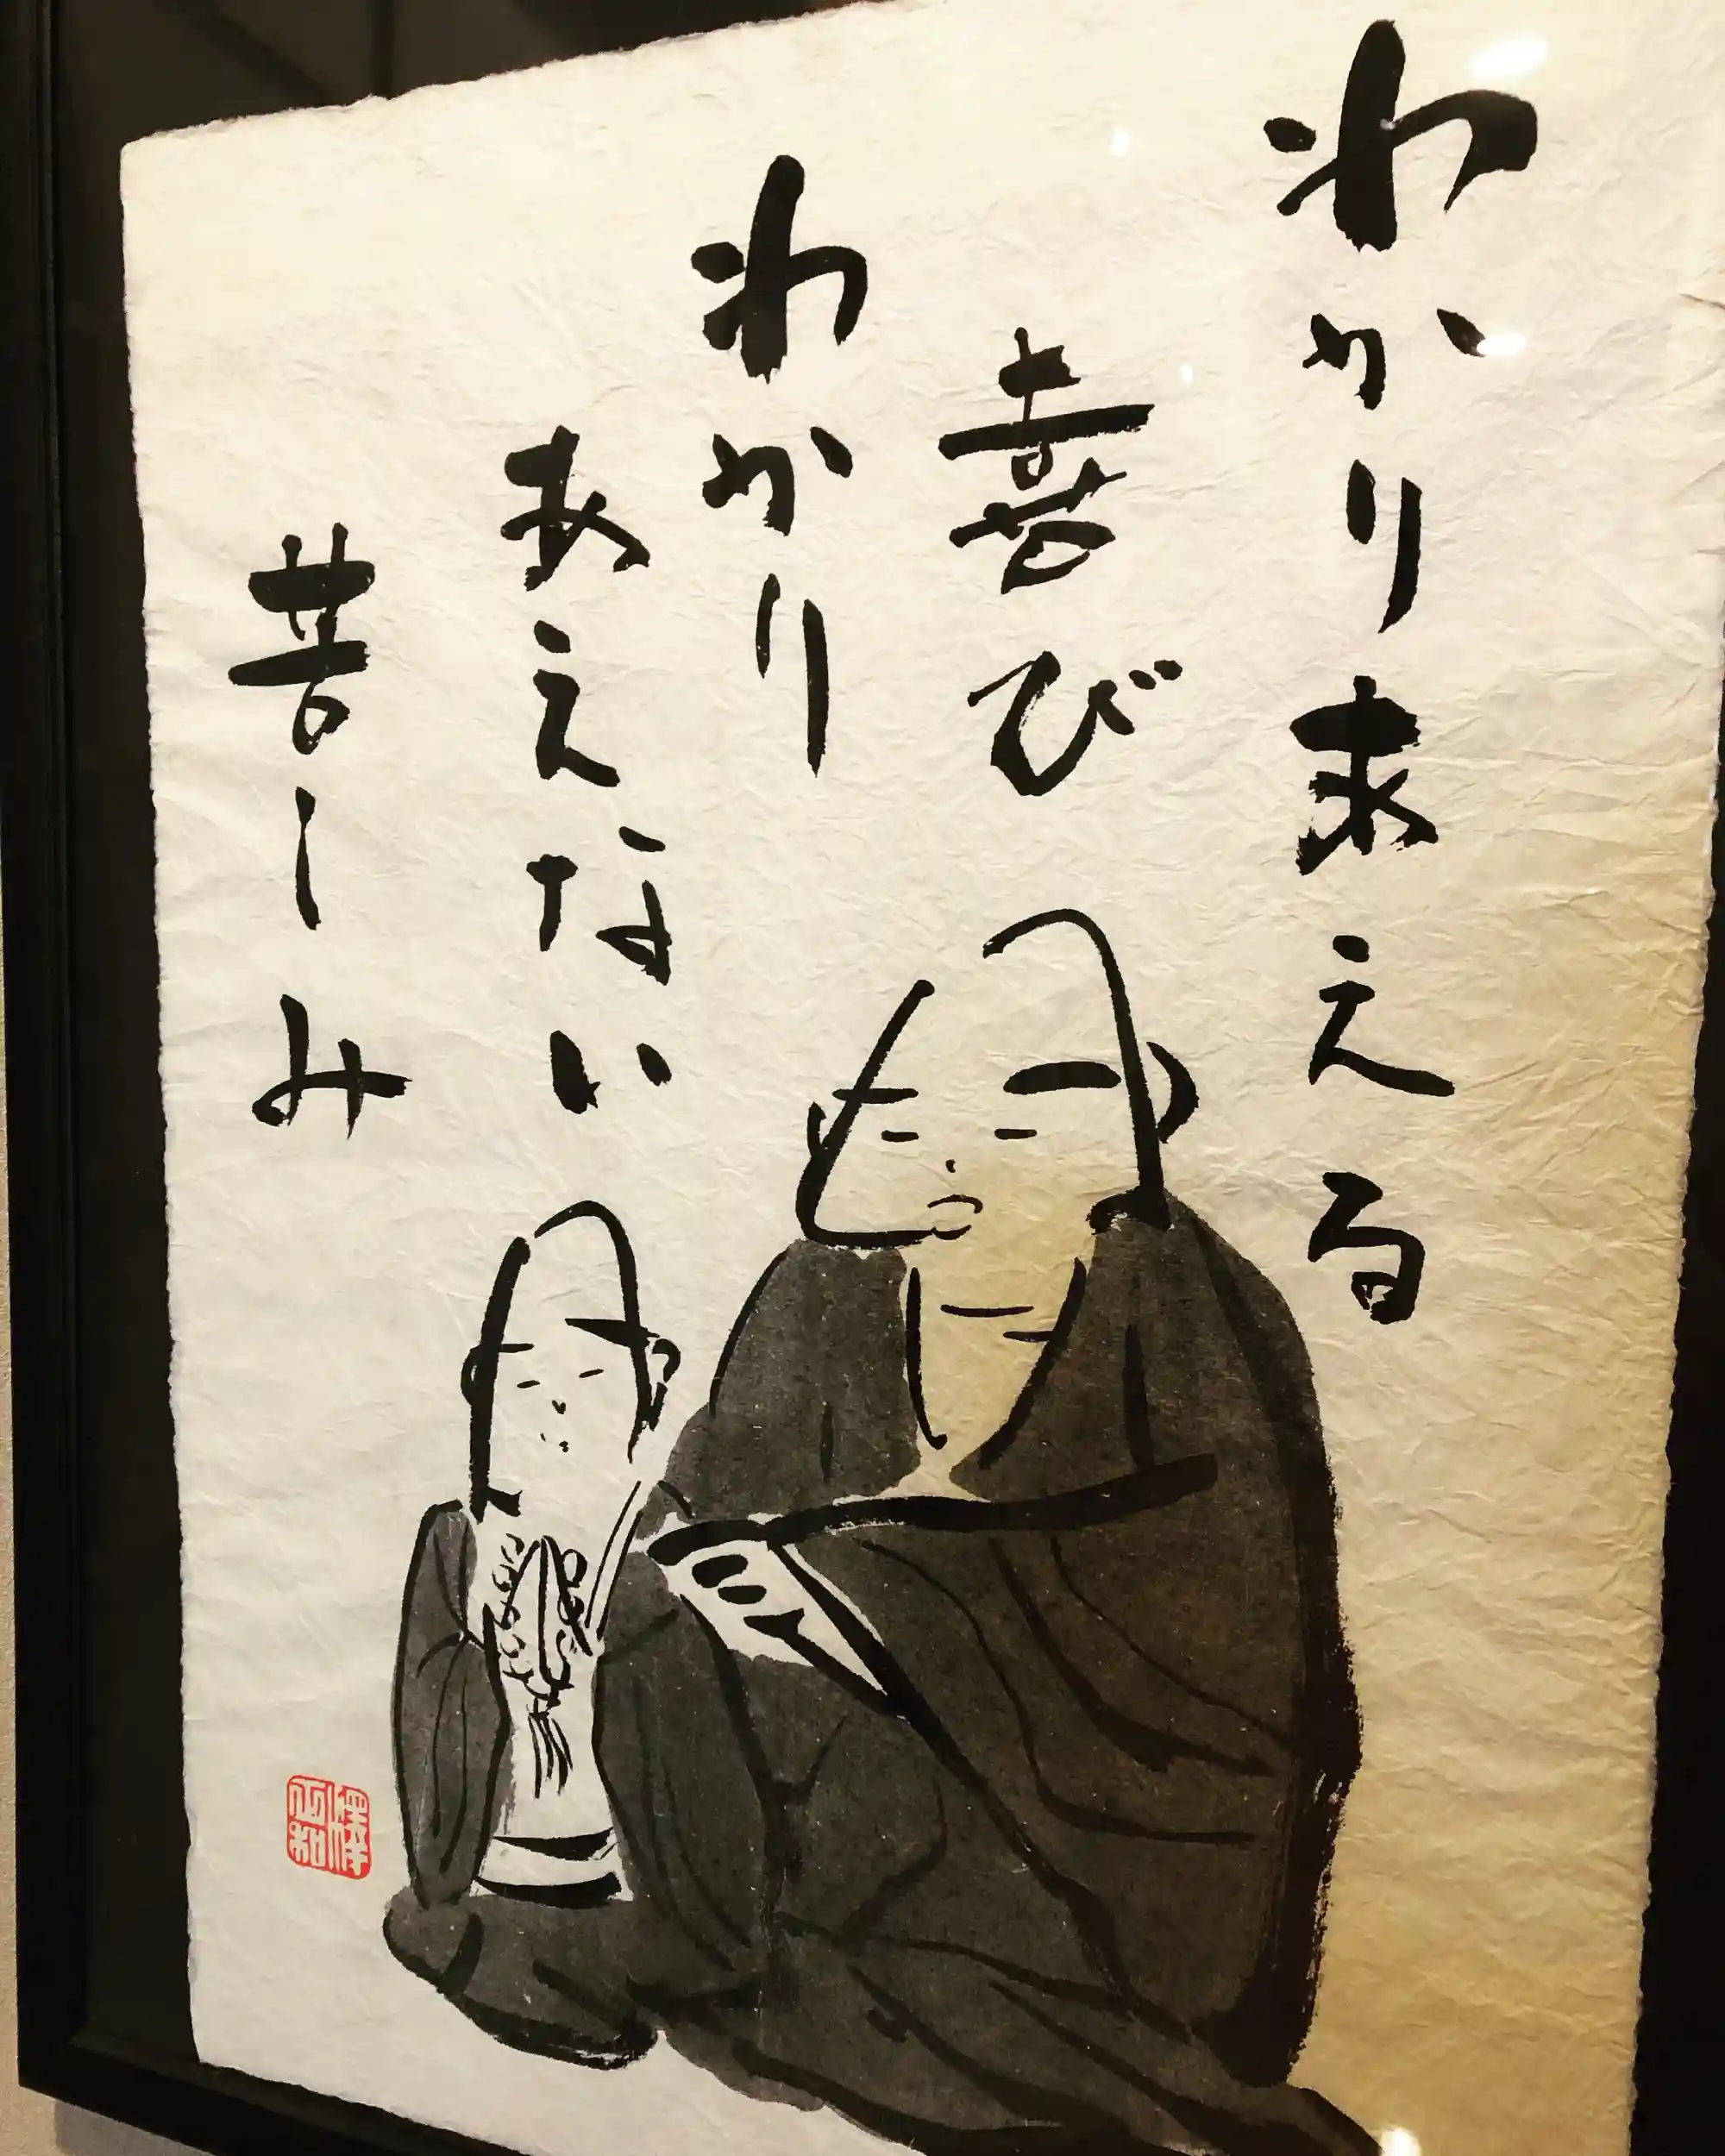 わかりあえる
喜び
わかり
あえない
苦しみ